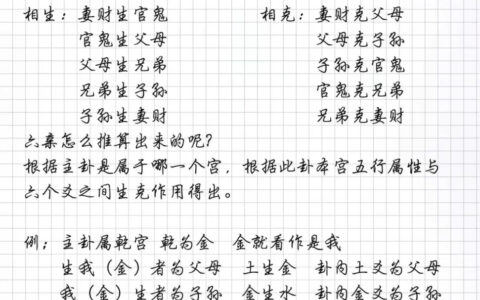 相生：妻财生官鬼　　　相克：妻财克父母
官鬼生父母　　　父母克子孙
父母生兄弟　　　子孙克官鬼
兄弟生子孙　　　官鬼克兄弟
子孙生妻财　　　兄弟克妻财
六亲怎么推算出来的呢？
根据主卦是属于哪一个宫，根据此卦本宫五行属性与
六个爻之间生克作用得出。
例：主卦属乾宫　乾为金　金就看作是我
生我（金）者为父母　土生金　卦内土爻为父母
我（金）生者为子孙　金生水　卦内金爻为子孙